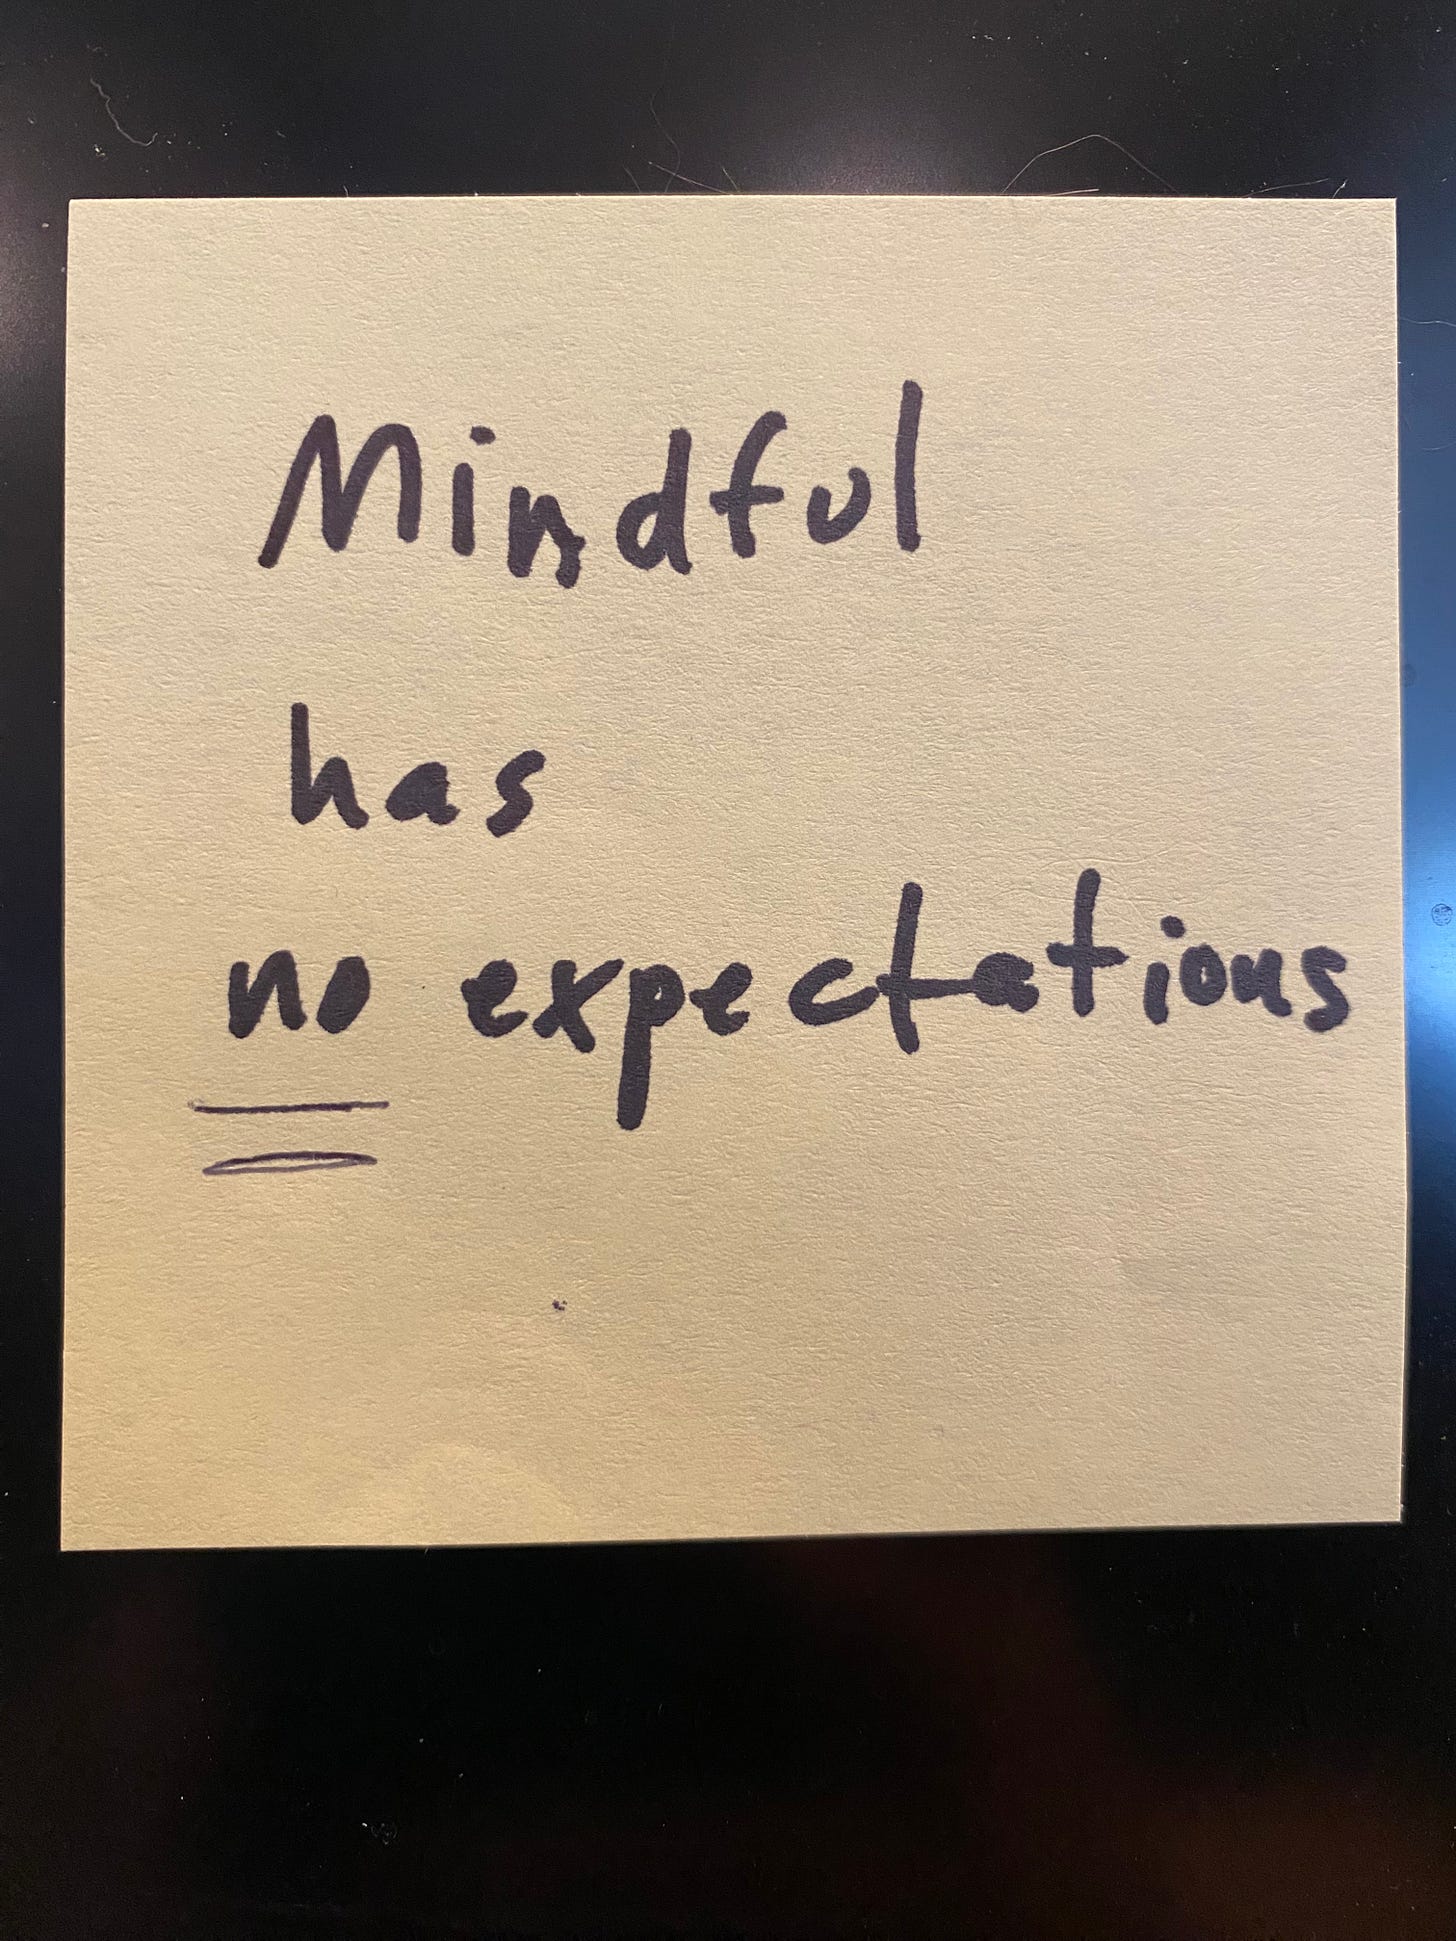 Mindful
has
no expectations